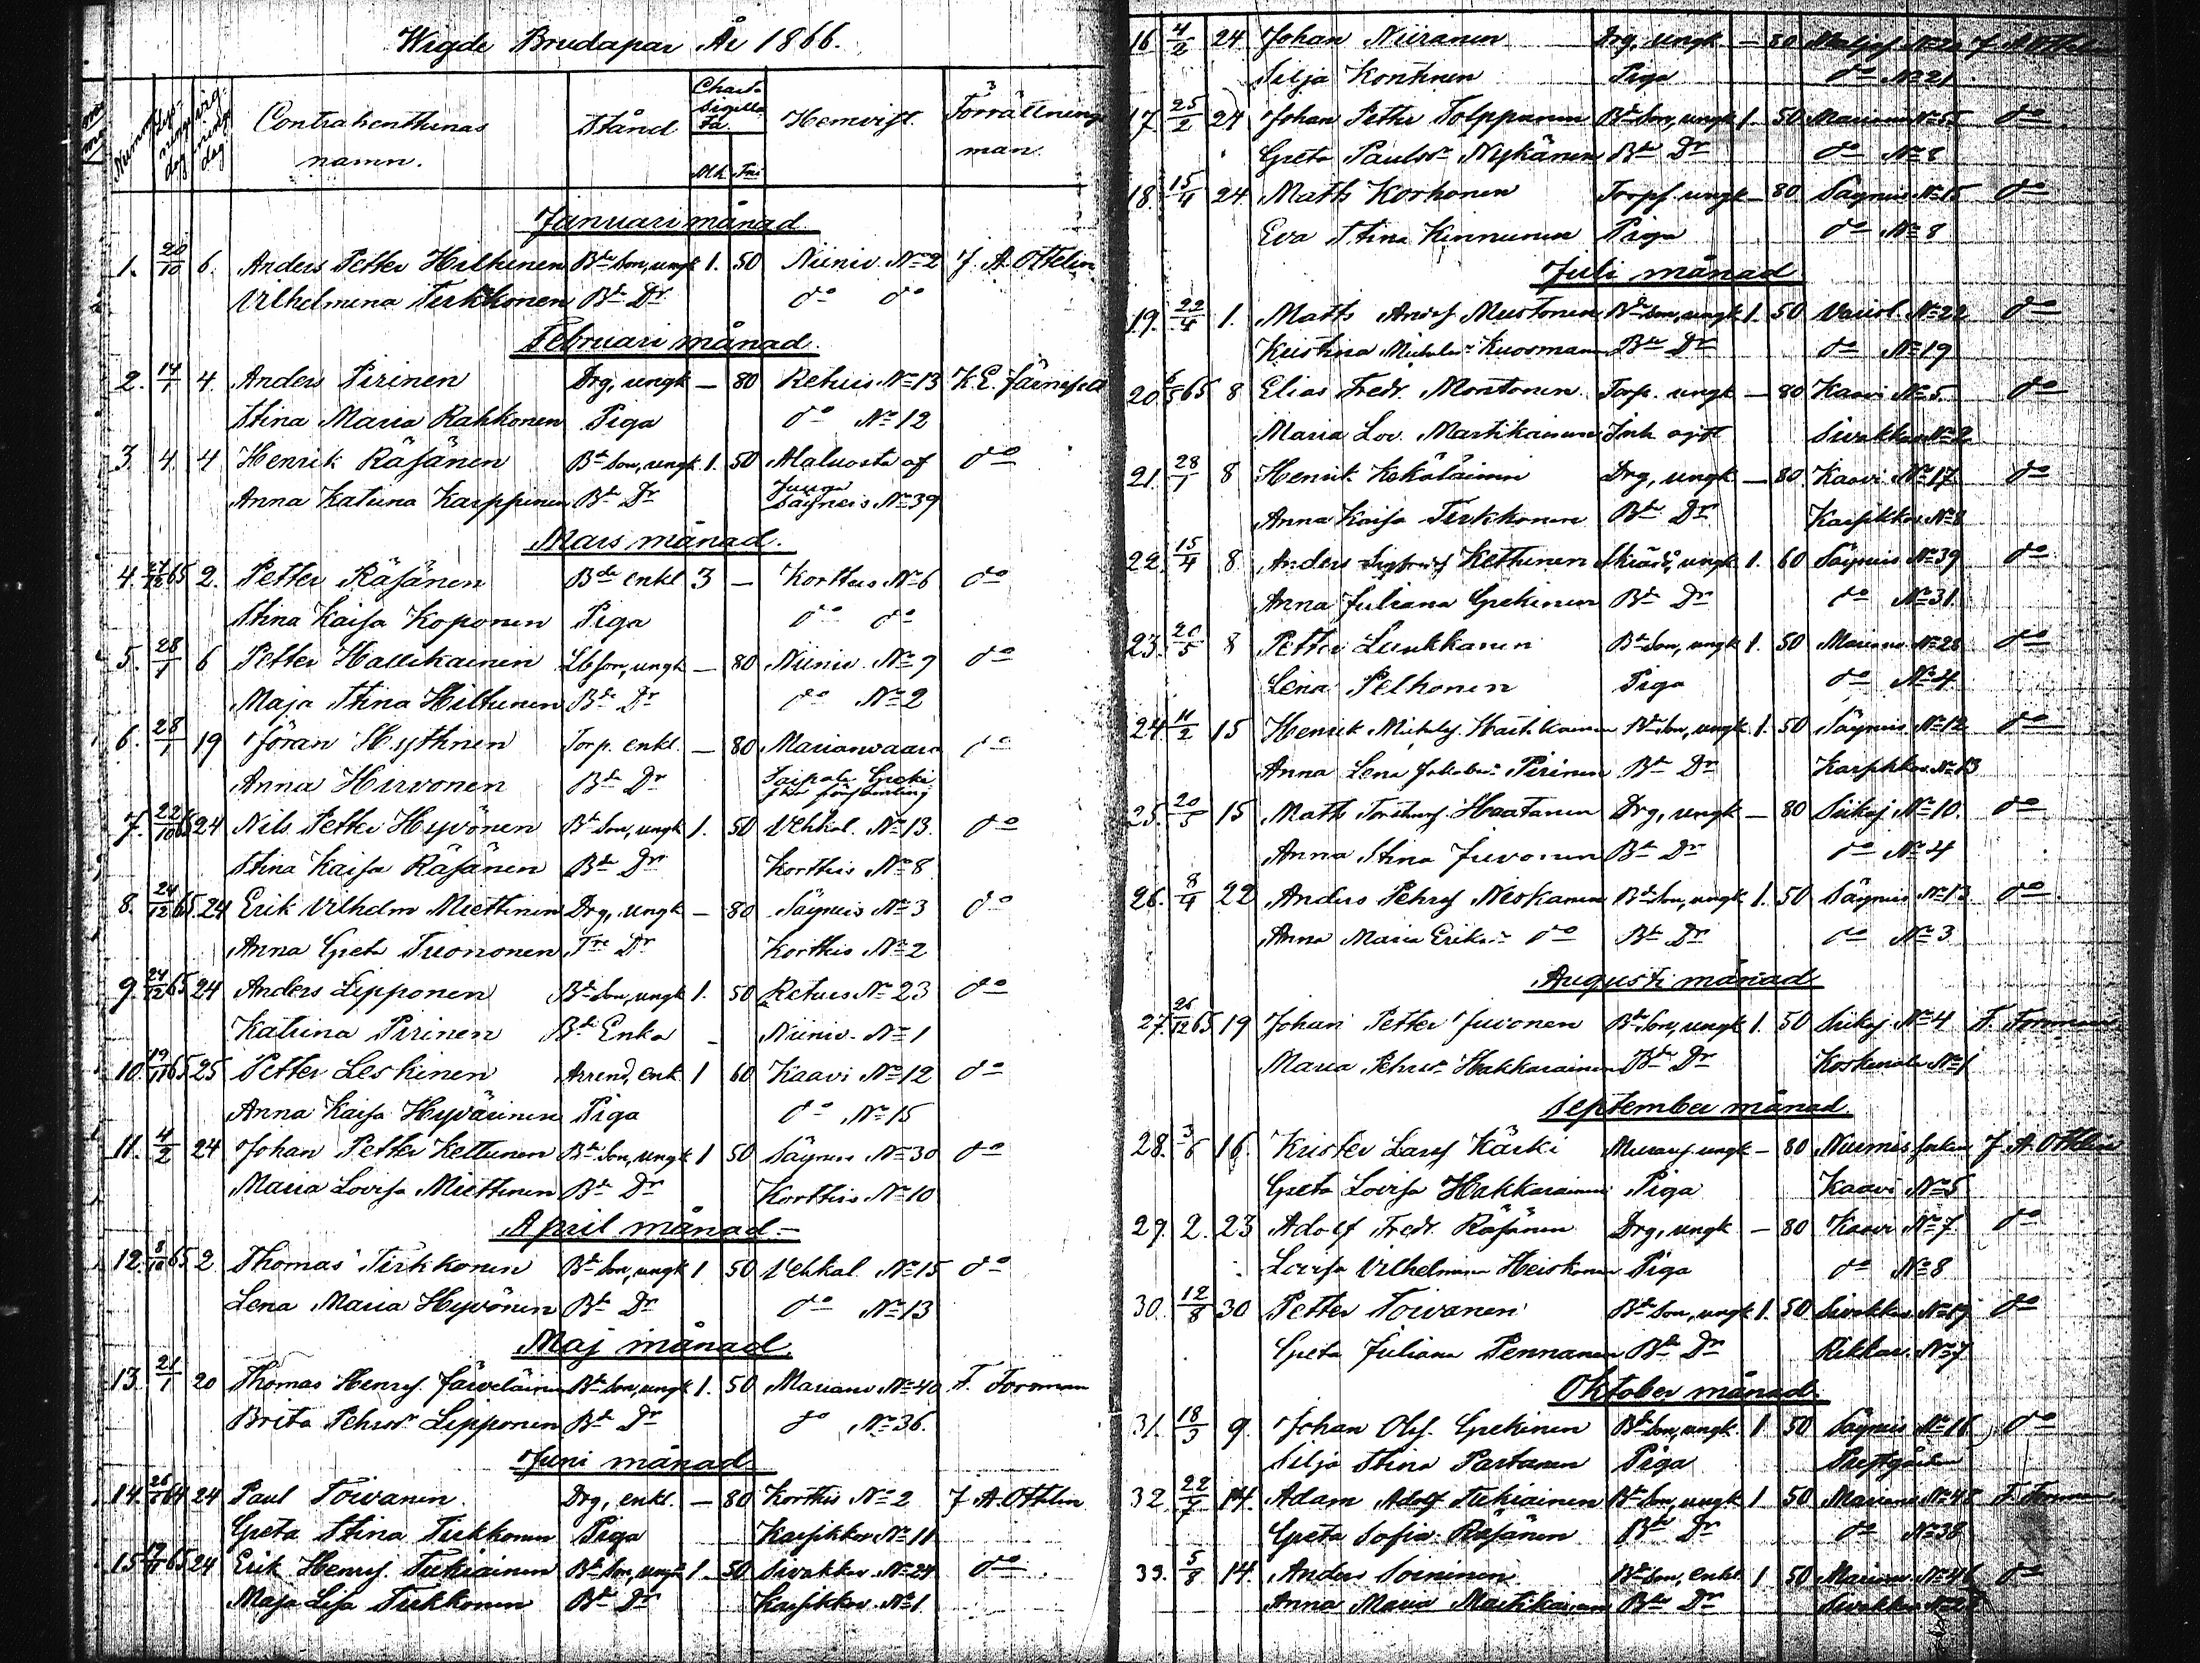 Wigde Brudapar År 1866.
Contrahenthernas namn.
Stånd
Charta Sigillata
Mk Pni
Hemvist
Förrättnings man.
Januari månad
1. 20/10 6. Anders Petter Hiltunen Bde Son, ungk 1. 50 Niiniv. No 2 J. A. Ottelin
Vilhelmina Tirkkonen Bde Dr do do
Februari månad
2. 14/1 4. Anders Pirinen Drg, ungk — 80 Retuis No 13 K. E. Järnefelt
Stina Maria Rahkonen Piga do No 12
3. 4. 4 Henrik Räsänen Bde Son, ungk 1. 50 Alaluosta af do
Anna Katrina Karppinen Bde Dr Säyneis No 39
Mars månad.
4. 65 2. Petter Räsänen Bde enkl 3 — Kortteis No 6 do
Stina Kaisa Koponen Piga do do
5. 28/1 6 Petter Hallikainen Lbson, ungk — 80 Niiniv. No 9 do
Maja Stina Hiltunen Bde Dr do No 2
6. 28/1 19 Jöran Hyttinen Torp. enkl. — 80 Marianvaara do
Anna Hirvonen Bde Dr Taipale Greki
7. 22/10 65 24 Nils Petter Hyvönen Bde Son, ungk 1. 50 Vehkal. No 13. do
Stina Kaisa Räsänen Bde Dr Kortteis No 8
8. 24/12 65 24 Erik Vilhelm Miettinen Drg, ungk — 80 Säyneis No 3 do
Anna Greta Tuononen Tre Dr Kortteis No 2
9. 24/12 65 24 Anders Lipponen Bde Son, ungk 1. 50 Retuis No 23 do
Katrina Pirinen Bde Enka Niiniv. No 1
10. 19/11 65 25 Petter Leskinen Arrend, enk 1 60 Kaavi No 12 do
Anna Kaisa Hyvärinen Piga do No 15
11. 4/2 24 Johan Petter Kettunen Bde Son, ungk 1 50 Säyneis No 30 do
Maria Lovisa Miettinen Bde Dr Kortteis No 10
April månad
12. 65 2 Thomas Tirkkonen Bde Son, ungk 1 50 Vehkal. No 15 do
Lena Maria Hyvönen Bde Dr do No 13
Maj månad
13. 21/1 20 Thomas Henrs. Järveläinen Bde Son, ungk 1. 50 Marianv No 40 F. Forsman
Brita Pehrsdr Lipponen Bde Dr do No 36.
Juni månad
14. 64 24 Paul Toivanen Drg, enkl. — 80 Korttis No 2 J. A. Ottelin
Greta Stina Tirkkonen Piga Karsikkov No 11
15. 65 24 Erik Henrs. Tukiainen Bde Son, ungk 1. 50 Sivakkav. No 24 do
Maja Lisa Tirkkonen Bde Dr Karsikkov. No 1.
16 4/2 24 Johan Niiranen Drg, ungk — 80 J. A. Ottelin
Silja Kontinen Piga do No 21
17. 25/2 24 Johan Petter Tolppanen Bde Son, ungk 1. 50 Marianv No 55 do
Greta Paulsdr Nykänen Bde Dr do No 8
18. 15/4 24 Matts Korhonen Torps ungk — 80 Säyneis No 15 do
Eva Stina Kinnunen Piga do No 8
Juli månad
19. 22/4 1. Matts Mustonen Bde Son, ungk 1. 50 No 22 do
Kristina Kuosmanen Bde Dr do No 19
20 65 8 Elias Fredr. Montonen Torp. ungk — 80 Kaavi No 5 do
Maria Lov. Martikainen Inh Sivakkav No 2
21. 28/1 8 Henrik Kekäläinen Drg, ungk — 80 Kaavi No 17 do
Anna Kaisa Tirkkonen Bde Dr Karsikkov No 8
22. 15/4 8 Anders Kettunen ungk 1. 60 Säyneis No 39 do
Anna Juliana Grekinen Bde Dr do No 31.
23. 20/5 8 Petter Lunkkanen Bde Son, ungk 1. 50 Marianv No 28 do
Lena Pelkonen Piga do No 4
24 11/2 15 Henrik Michels. Bde Son, ungk 1. 50 Säyneis No 12 do
Anna Lena Jakobsdr Pirinen Bde Dr Karsikkov No 13
25. 20/5 15 Matts Haatanen Drg, ungk — 80 Siikaj. No 10. do
Anna Stina Juvonen Bde Dr do No 4
26. 8/4 22 Anders Pehrs Niskanen Bde Son, ungk 1. 50 Säyneis No 13. do
Anna Maria Eriksdr do Bde Dr do No 3
Augusti månad
27. 26/12 65 19 Johan Petter Juvonen Bde Son, ungk 1. 50 Siikaj. No 4 F. Forsman
Maria Pehrsdr Hakkarainen Bde Dr No 1
September månad
28. 3/6 16 Krister Larss Kärki ungk — 80 Nurmis J. A. Ottelin
Greta Lovisa Hakkarainen Piga Kaavi No 5
29. 2. 23 Adolf Fredr. Räsänen Drg, ungk — 80 Kaavi No 7. do
Lovisa Vilhelmina Heiskanen Piga do No 8
30. 12/8 30 Petter Toivanen Bde Son, ungk 1. 50 Sivakkav No 19 do
Greta Juliana Pennanen Bde Dr Rikkav. No 7.
Oktober månad
31. 18/3 9. Johan Ols. Grekinen Bde Son, ungk. 1 50 Säyneis No 16 do
Silja Stina Partanen Piga Prestgården
32. 22/7 14. Adam Adolf Tukiainen Bde Son, ungk 1 50 Marianv No 48 F. Forsman
Greta Sofia Räsänen Bde Dr do No 38
33. 5/8 14. Anders Soininen Bde Son, enkl 1 50 Marianv No 46 do
Anna Maria Martikainen Bde Dr Sivakkav